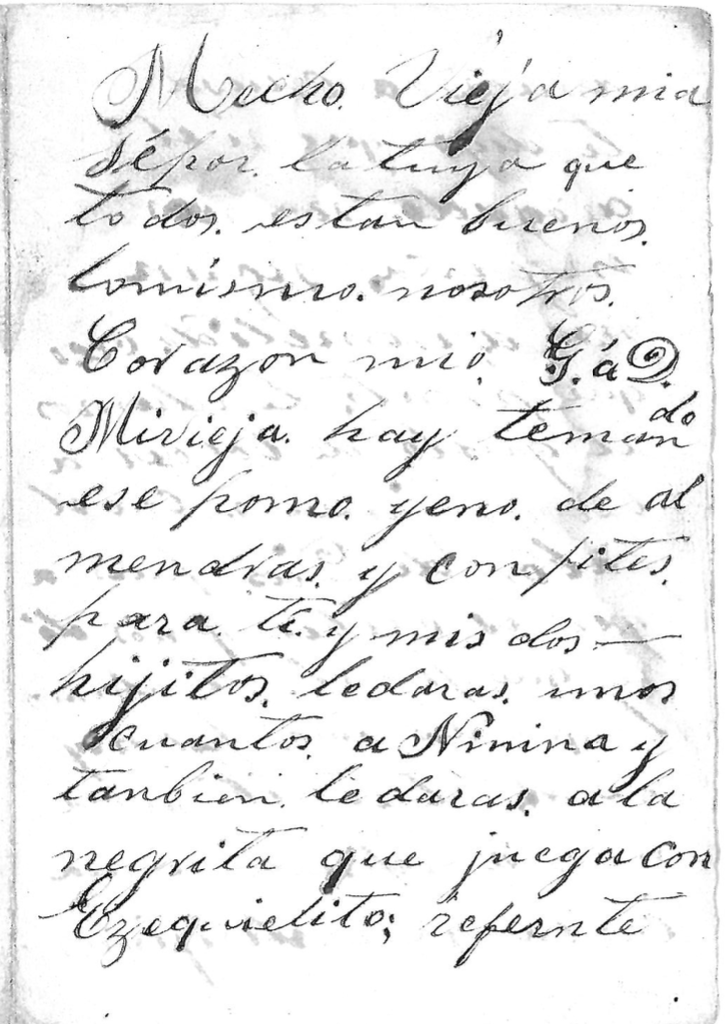 Mecho. Vieja mia
sépor. la tuya que
todos. estan buenos.
lomismo. nosotros.
Corazon mio. G. á D.
Mivieja. hay temando
ese pomo. yeno. de al
mendras. y confites.
para. ti. y mis dos—
hijitos. ledaras. unos
cuantos. a Ninina y
tanbien. le daras. a la
negrita que juega con
Ezequielito; refernte